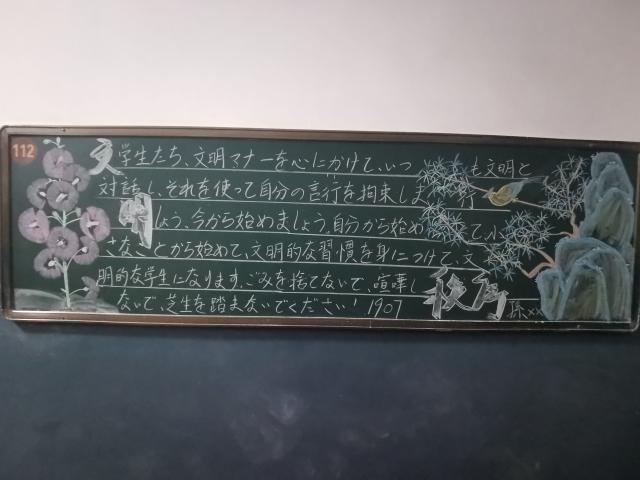 112
学生たち、文明マナーを心にかけて、いつも文明と
対話し、それを使って自分の言行を拘束しま行
しょう、今から始めましょう、自分から始めて、小
さなことから始めて、文明的な習慣を身につけて、文
明的な学生になります。ごみを捨てないで、喧嘩し
ないで、芝生を踏まないでください！ 1907 孫××
文明